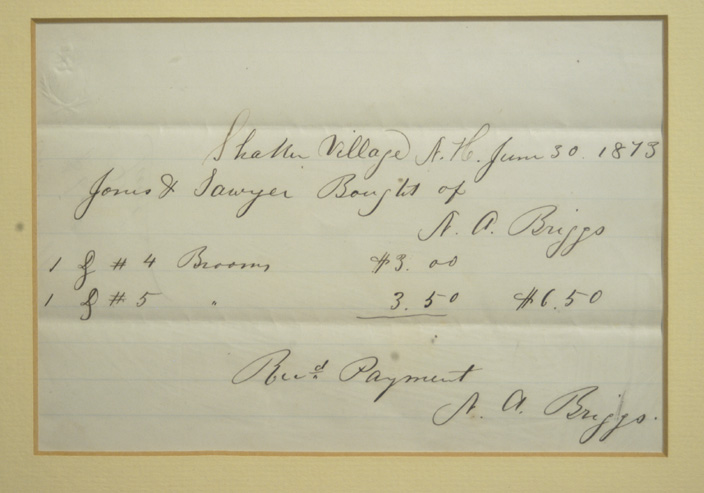 Shaker Village N. H. June 30. 1873
Jones & Sawyer Bought of
N. A. Briggs
1 # 4 Brooms $3. 00
1 # 5 " 3. 50 $6. 50
Rec'd Payment
N. A. Briggs.